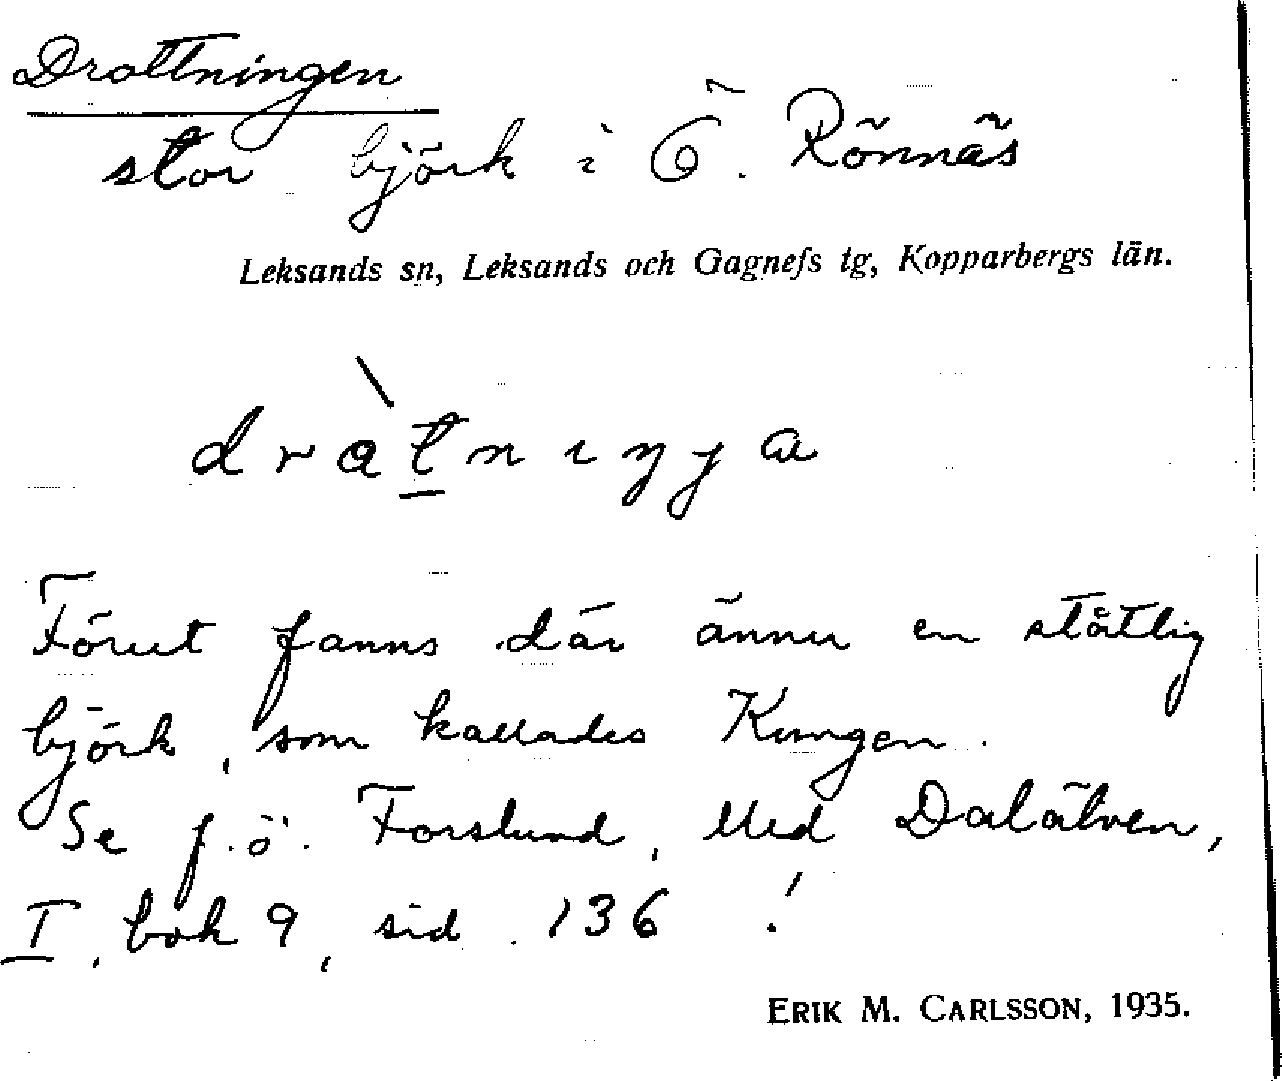 Drottningen
stor björk i Ö. Rönnäs
Leksands sn, Leksands och Gagnefs tg, Kopparbergs län.
Förut fanns där ännu en ståtlig
björk, som kallades Kungen.
Se f.ö. Forslund, Med Dalälven,
I, bok 9, sid. 136!
ERIK M. CARLSSON, 1935.